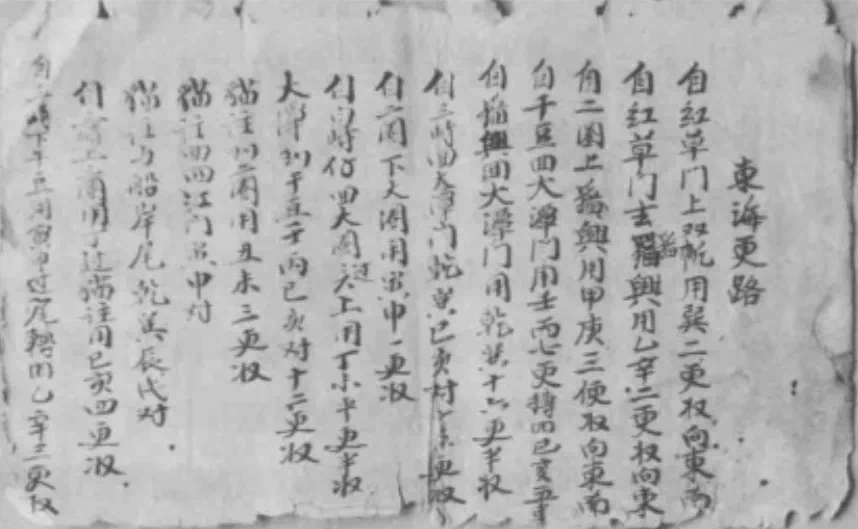 東海更路
自红草门上双帆用巽二更收向東南
自红草门去猫興用乙辛二更收向東
自二圈上猫興用甲庚三更收向東南
自干豆回大潭门用壬丙心更轉回己亥
自猫興回大潭门用乾巽十六更半收
自三峙回大潭门乾巽己亥对更收
自二圈下大圈用寅申一更收
自白峙仔回大圈过上用丁未半更半收
大潭到干豆壬丙己亥对十二更收
猫注到二圈用丑未三更收
猫注回四江门寅申对
猫注与船岸尾乾巽辰戌对
自上用丁过猫注用己亥四更收
自二干豆用寅申过尾轉回乙辛三更收